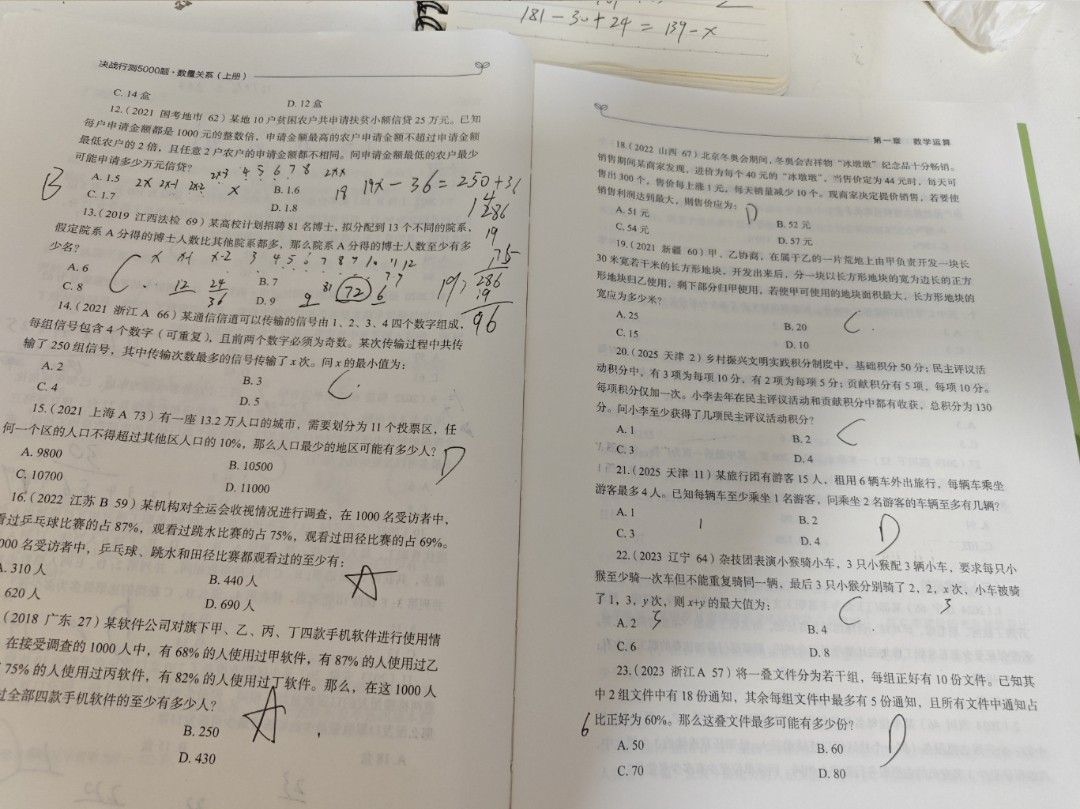 181-30+24=139-x
决战行测5000题·数量关系（上册）
C. 14盒 D. 12盒
12.（2021 国考地市 62）某地10户贫困农户共申请扶贫小额信贷25万元。已知
每户申请金额都是1000元的整数倍，申请金额最高的农户申请金额不超过申请金额
最低农户的2倍，且任意2户农户的申请金额都不相同。问申请金额最低的农户最少
可能申请多少万元信贷？
A. 1.5 B. 1.6
C. 1.7 D. 1.8
B
2x 2x-1 2x-2 3 4 5 6 7 8
x
19 19x-36=250+36
286
19
13.（2019 江西法检 69）某高校计划招聘81名博士，拟分配到13个不同的院系，
假定院系A分得的博士人数比其他院系都多，那么院系A分得的博士人数至少有多
少名？
x x-1 x-2 3 4 5 6 7 8 9 10 11 12
A. 6 B. 7
C. 8 D. 9
C
12 24
36
81 72
9 6
15
19 286
19
96
14.（2021 浙江A 66）某通信信道可以传输的信号由1、2、3、4四个数字组成，
每组信号包含4个数字（可重复），且前两个数字必须为奇数。某次传输过程中共传
输了250组信号，其中传输次数最多的信号传输了x次。问x的最小值为：
A. 2 B. 3
C. 4 D. 5
C
15.（2021 上海A 73）有一座13.2万人口的城市，需要划分为11个投票区，任
何一个区的人口不得超过其他区人口的10%，那么人口最少的地区可能有多少人？
D
A. 9800 B. 10500
C. 10700 D. 11000
16.（2022 江苏B 59）某机构对全运会收视情况进行调查，在1000名受访者中，
看过乒乓球比赛的占87%，观看过跳水比赛的占75%，观看过田径比赛的占69%。
000名受访者中，乒乓球、跳水和田径比赛都观看过的至少有：
A. 310人 B. 440人
620人 D. 690人
A
（2018 广东 27）某软件公司对旗下甲、乙、丙、丁四款手机软件进行使用情
在接受调查的1000人中，有68%的人使用过甲软件，有87%的人使用过乙
75%的人使用过丙软件，有82%的人使用过丁软件。那么，在这1000人
过全部四款手机软件的至少有多少人？
B. 250
D. 430
A
第一章 数学运算
18.（2022 山西 67）北京冬奥会期间，冬奥会吉祥物“冰墩墩”纪念品十分畅销。
销售期间某商家发现，进价为每个40元的“冰墩墩”，当售价定为44元时，每天可
售出300个，售价每上涨1元，每天销量减少10个。现商家决定提价销售，若要使
销售利润达到最大，则售价应为：
D
A. 51元 B. 52元
C. 54元 D. 57元
19.（2021 新疆 60）甲、乙协商，在属于乙的一片荒地上由甲负责开发一块长
30米宽若干米的长方形地块，开发出来后，分一块以长方形地块的宽为边长的正方
形地块归乙使用，剩下部分归甲使用，若使甲可使用的地块面积最大，长方形地块的
宽应为多少米？
A. 25 B. 20
C. 15 D. 10
C.
20.（2025 天津 2）乡村振兴文明实践积分制度中，基础积分50分；民主评议活
动积分中，有3项为每项10分，有2项为每项5分；贡献积分有5项，每项10分。
每项积分仅加一次。小李去年在民主评议活动和贡献积分中都有收获，总积分为130
分。问小李至少获得了几项民主评议活动积分？
A. 1 B. 2
C. 3 D. 4
C
21.（2025 天津 11）某旅行团有游客15人，租用6辆车外出旅行，每辆车乘坐
游客最多4人。已知每辆车至少乘坐1名游客，问乘坐2名游客的车辆至多有几辆？
A. 1 B. 2
C. 3 D. 4
1
D
22.（2023 辽宁 64）杂技团表演小猴骑小车，3只小猴配3辆小车，要求每只小
猴至少骑一次车但不能重复骑同一辆，最后3只小猴分别骑了2，2，x次，小车被骑
了1，3，y次，则x+y的最大值为：
A. 2 B. 4
C. 6 D. 8
3
C.
3
23.（2023 浙江A 57）将一叠文件分为若干组，每组正好有10份文件。已知其
中2组文件中有18份通知，其余每组文件中最多有5份通知，且所有文件中通知占
比正好为60%。那么这叠文件最多可能有多少份？
A. 50 B. 60
C. 70 D. 80
6
D